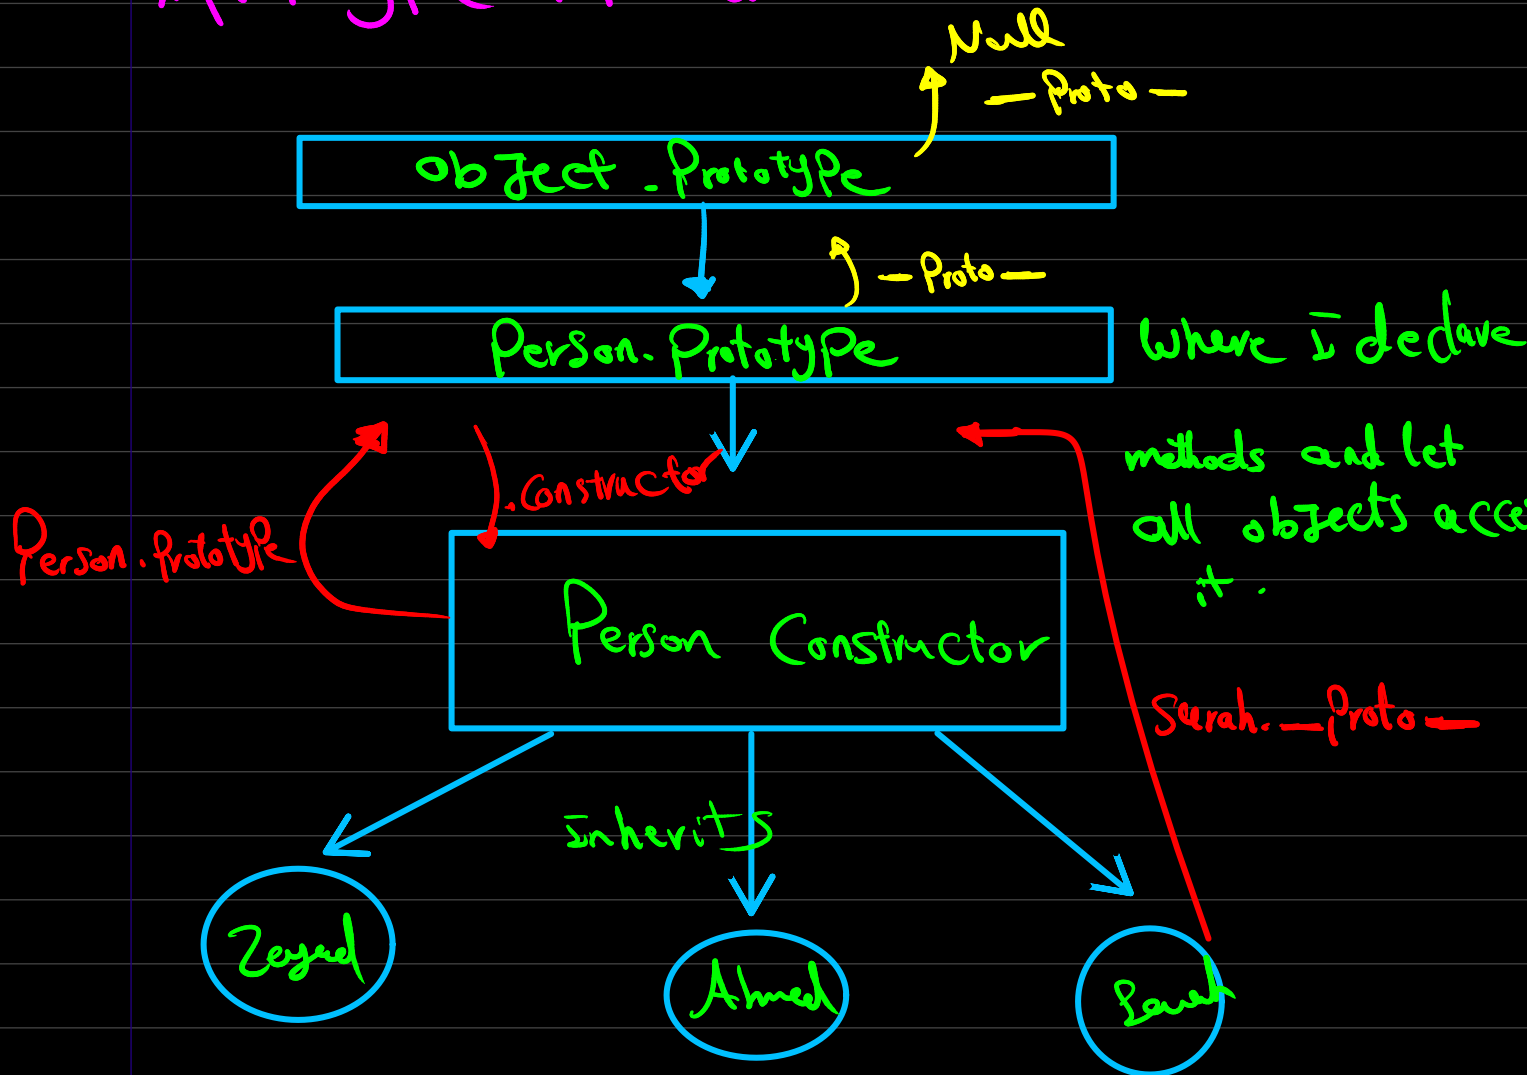 Null
__Proto__
Object.Prototype
__Proto__
Person.Prototype
where I declare
methods and let
all objects acce
it.
.Constructor
Person.Prototype
Person Constructor
Sarah.__Proto__
Inherits
Zeyad
Ahmed
Sarah